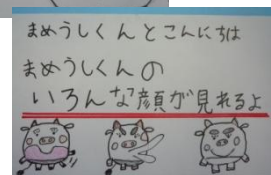 まめうしくんとこんにちは
まめうしくんの
いろんな顔が見れるよ